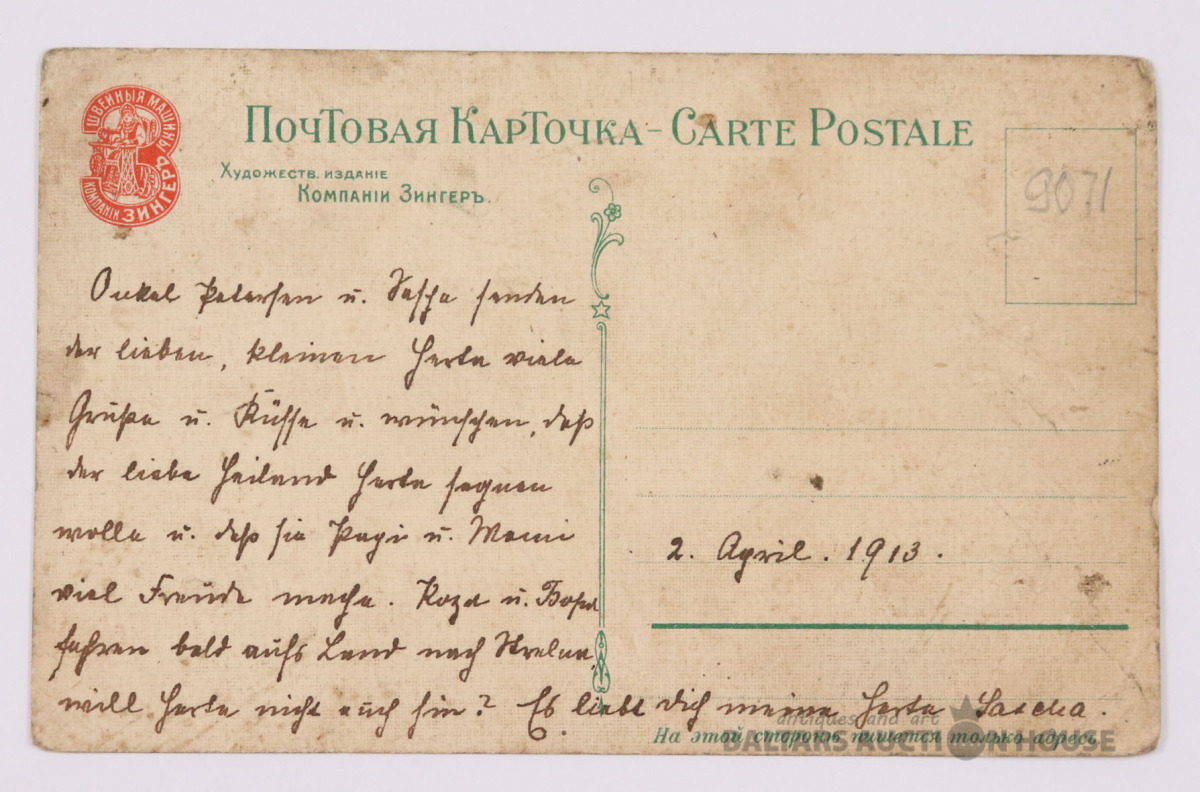 ШВЕЙНЫЯ МАШИНЫ
КОМПАНІИ ЗИНГЕРЪ
ПОЧТОВАЯ КАРТОЧКА – CARTE POSTALE
ХУДОЖЕСТВ. ИЗДАНІЕ
КОМПАНІИ ЗИНГЕРЪ.
9071
Onkel Petersen u. Sascha senden
der lieben, kleinen Herta viele
Grüße u. Küsse u. wünschen, daß
der liebe Heiland Herta segnen
wolle u. daß sie Papi u. Mami
viel Freude mache. Koza u.
fahren bald aufs Land nach Strelna,
will Herta nicht auch hin? Es liebt Dich meine Herta Sascha.
2. April. 1913.
На этой сторонѣ пишется только адресъ
antiques and art
BALTARS AUCTION HOUSE